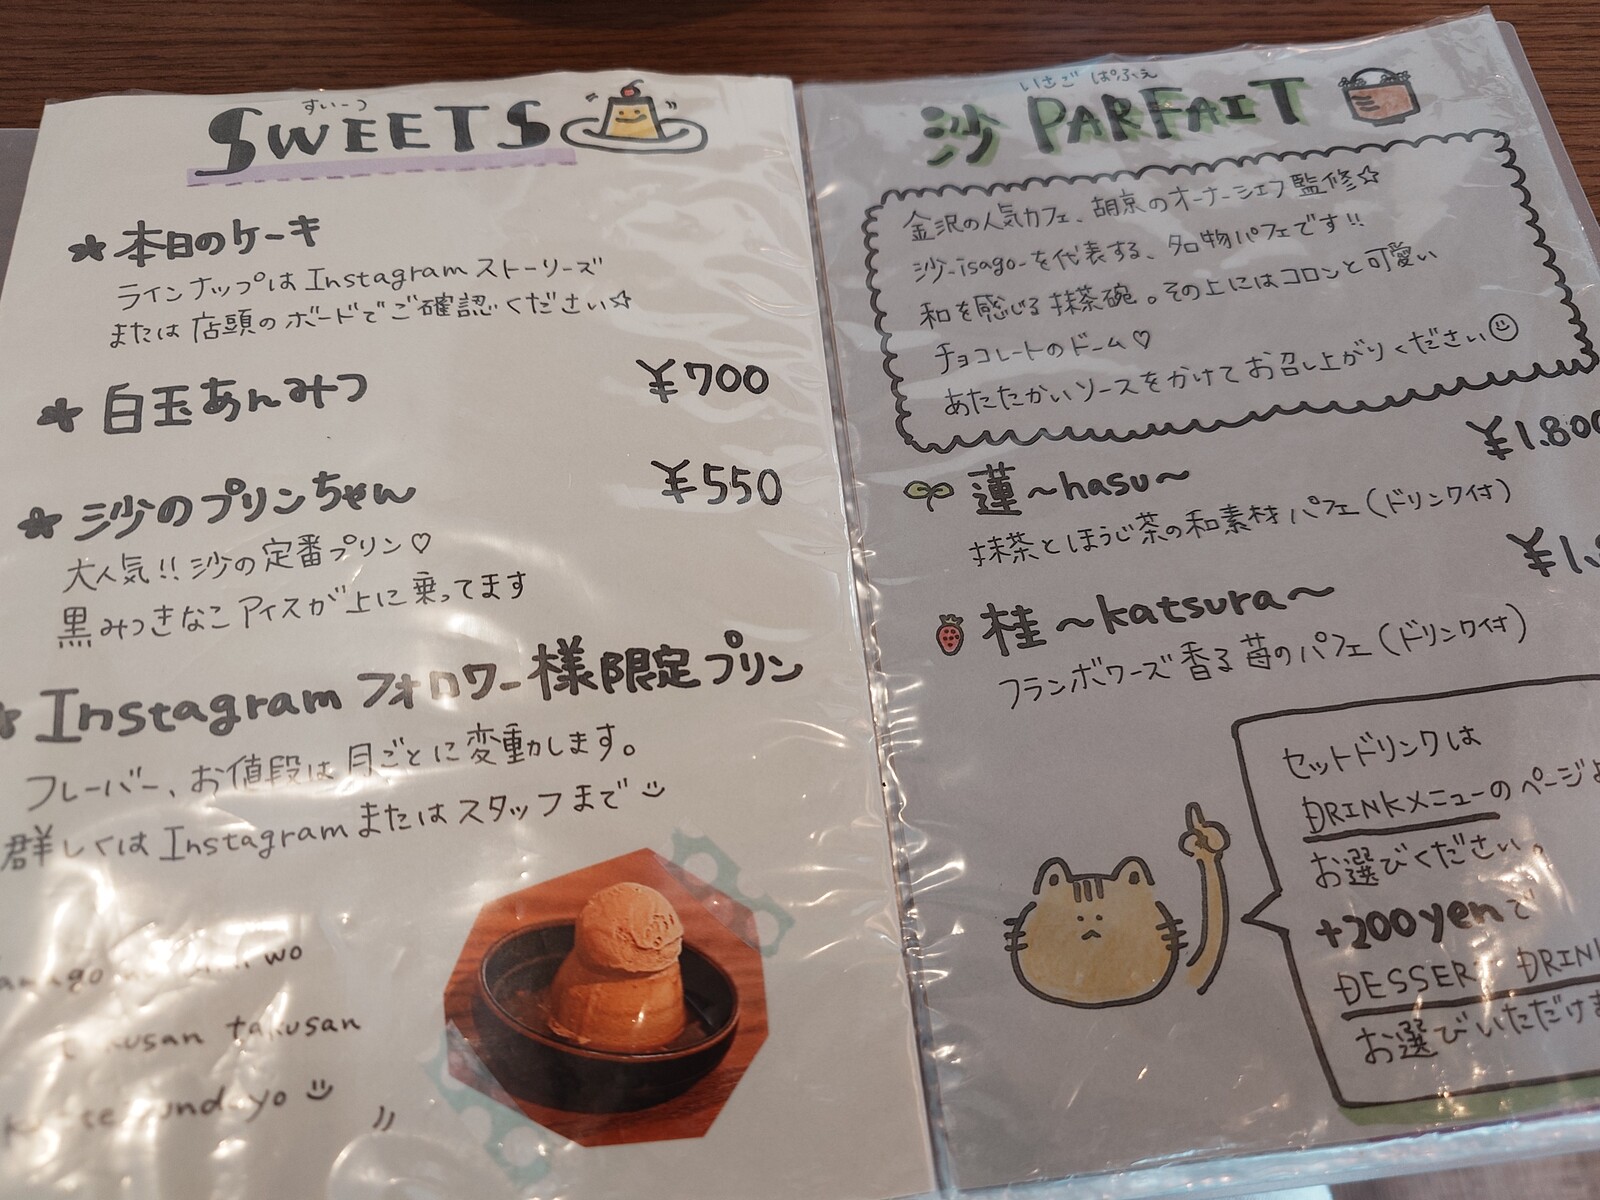 すいーつ
SWEETS
本日のケーキ
ラインナップは Instagram ストーリーズ
または 店頭のボードでご確認ください☆
白玉あんみつ ¥700
沙のプリンちゃん ¥550
大人気!! 沙の定番プリン♡
黒みつきなこアイスが上に乗ってます
Instagram フォロワー様限定プリン
フレーバー、お値段は月ごとに変動します。
群しくは Instagram または スタッフまで
wo
takusan
いさご ぱふぇ
沙 PARFAIT
金沢の人気カフェ、胡京のオーナーシェフ監修☆
沙-isago-を代表する、名物パフェです!!
和を感じる抹茶碗。その上にはコロンと可愛い
チョコレートのドーム♡
あたたかいソースをかけてお召し上がりください
¥1.800
蓮 ~hasu~
抹茶とほうじ茶の和素材パフェ(ドリンク付)
桂 ~katsura~
フランボワーズ香る苺のパフェ(ドリンク付)
セットドリンクは
DRINKメニューのページ
お選びください。
+200yenで
DESSERT
お選びいただけ